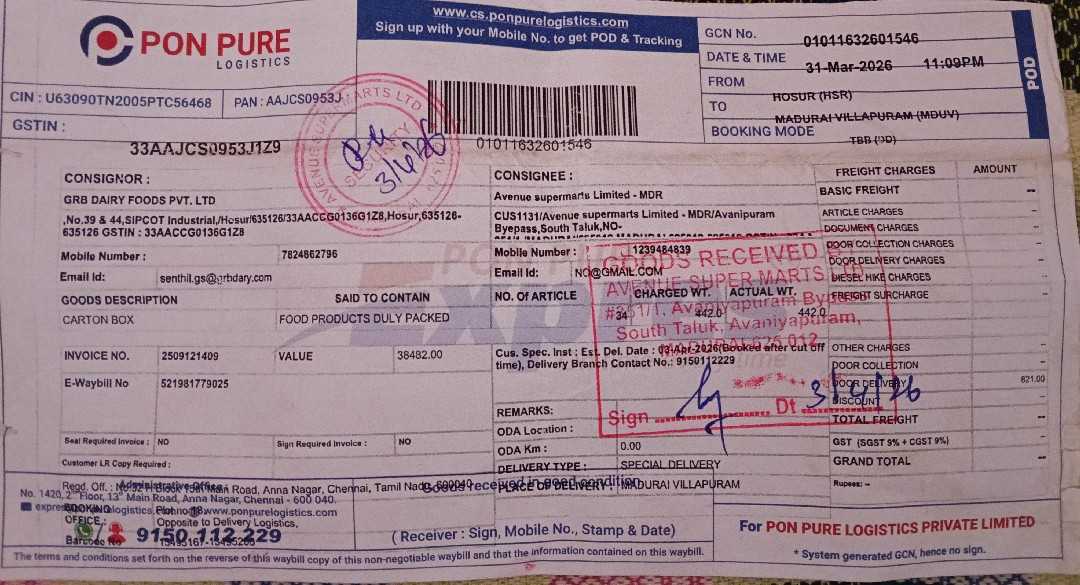 PON PURE
LOGISTICS
www.cs.ponpurelogistics.com
Sign up with your Mobile No. to get POD & Tracking
GCN No. 01011632601546
DATE & TIME 31-Mar-2026 11:09PM
FROM HOSUR (HSR)
TO MADURAI VILLAPURAM (MDUV)
BOOKING MODE TBB
POD
CIN : U63090TN2005PTC56468 PAN : AAJCS0953J
GSTIN :
33AAJCS0953J1Z9
01011632601546
AVENUE SUPERMARTS LTD
SECURITY
3/4/26
CONSIGNOR :
GRB DAIRY FOODS PVT. LTD
,No.39 & 44,SIPCOT Industrial,/Hosur/635126/33AACCG0136G1Z8,Hosur,635126-
635126 GSTIN : 33AACCG0136G1Z8
Mobile Number : 7824862796
Email Id: senthil.gs@grbdary.com
GOODS DESCRIPTION SAID TO CONTAIN
CARTON BOX FOOD PRODUCTS DULY PACKED
INVOICE NO. 2509121409 VALUE 38482.00
E-Waybill No 521981779025
Seal Required Invoice : NO Sign Required Invoice : NO
Customer LR Copy Required :
CONSIGNEE :
Avenue supermarts Limited - MDR
CUS1131/Avenue supermarts Limited - MDR/Avanipuram
Byepass,South Taluk,NO-
Mobile Number : 1239484839
Email Id: NO@GMAIL.COM
NO. Of ARTICLE CHARGED WT. ACTUAL WT.
34 442.0 442.0
Cus. Spec. Inst : Est. Del. Date : 03-Apr-2026(Booked after cut off
time), Delivery Branch Contact No.: 9150112229
REMARKS:
ODA Location :
ODA Km : 0.00
DELIVERY TYPE : SPECIAL DELIVERY
PLACE OF DELIVERY : MADURAI VILLAPURAM
GOODS RECEIVED
AVENUE SUPER MARTS LTD
#351/1, Avaniyapuram Bypass
South Taluk, Avaniyapuram,
MADURAI-625 012
Sign Dt 3/4/26
FREIGHT CHARGES AMOUNT
BASIC FREIGHT --
ARTICLE CHARGES --
DOCUMENT CHARGES --
DOOR COLLECTION CHARGES --
DOOR DELIVERY CHARGES --
DIESEL HIKE CHARGES --
FREIGHT SURCHARGE --
OTHER CHARGES --
DOOR COLLECTION --
DOOR DELIVERY 621.00
DISCOUNT --
TOTAL FREIGHT --
GST (SGST 9% + CGST 9%) --
GRAND TOTAL --
Rupees: --
Goods received in good condition
Regd. Off. : Main Road, Anna Nagar, Chennai, Tamil Nadu, 600040
Administrative Office :
No. 1420, 2nd Floor, 13th Main Road, Anna Nagar, Chennai - 600 040.
www.ponpurelogistics.com
BOOKING
OFFICE : Opposite to Delivery Logistics,
9150 112 229
(Receiver : Sign, Mobile No., Stamp & Date)
For PON PURE LOGISTICS PRIVATE LIMITED
* System generated GCN, hence no sign.
The terms and conditions set forth on the reverse of this waybill copy of this non-negotiable waybill and that the information contained on this waybill.